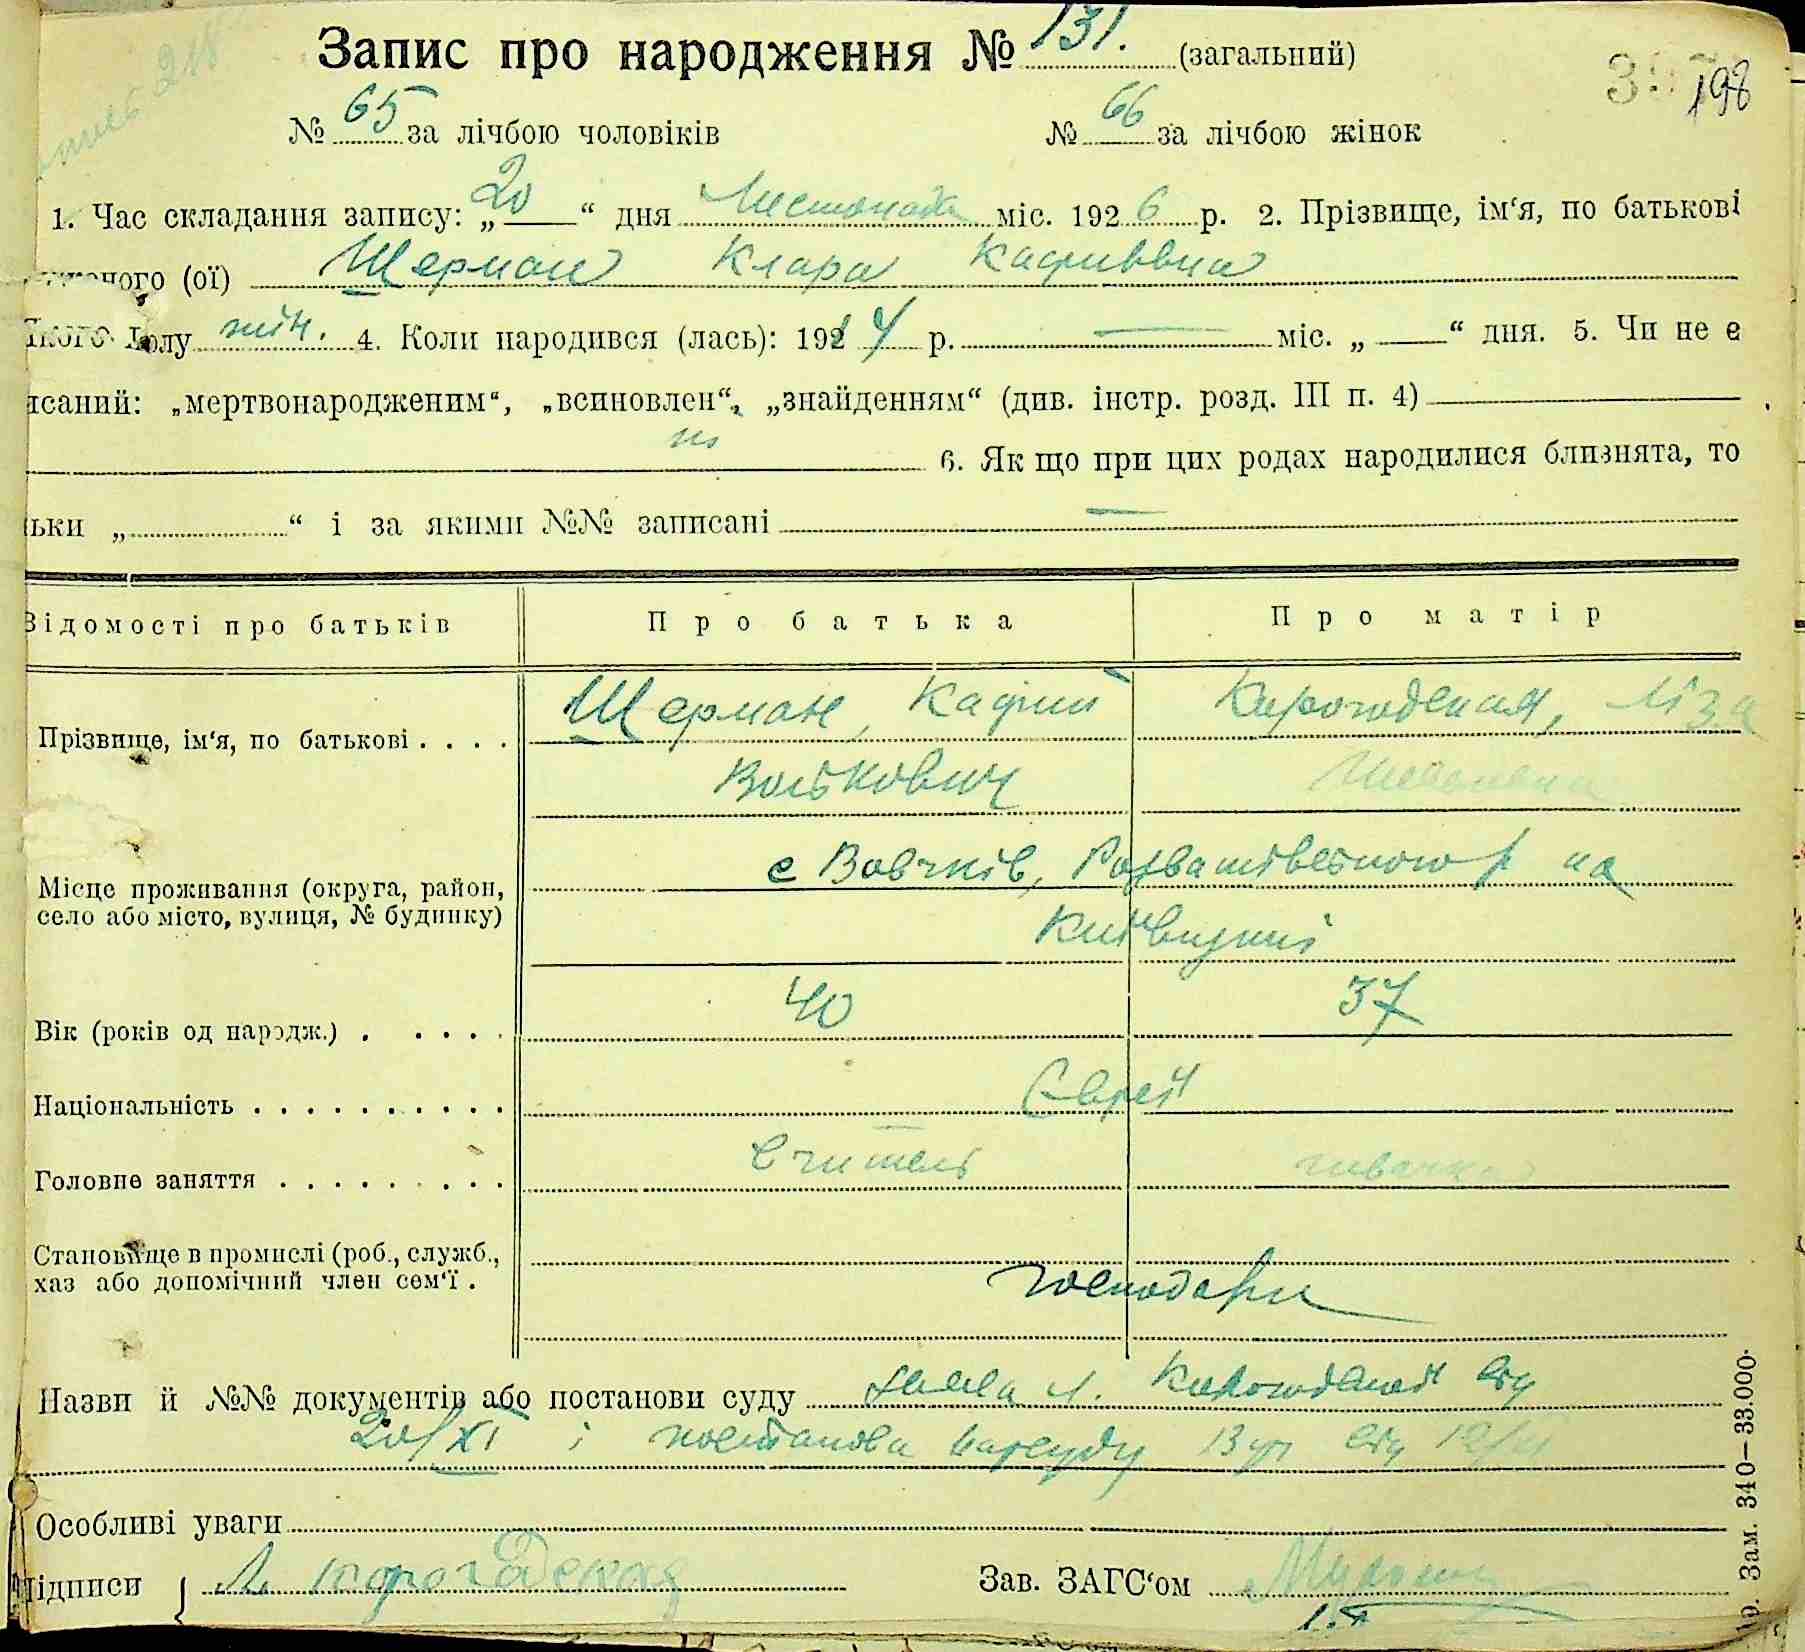 Запис про народження № 131. (загальний)
198
№ 65 за лічбою чоловіків № 66 за лічбою жінок
1. Час складання запису: „20“ дня Листопада міс. 1926 р. 2. Прізвище, ім‘я, по батькові
ного (ої) Шерман Клара
кого полу жін. 4. Коли народився (лась): 1914 р. — міс. „—“ дня. 5. Чи не є
исаний: „мертвонародженим“, „всиновлен“, „знайденням“ (див. інстр. розд. III п. 4)
ні 6. Як що при цих родах народилися близнята, то
ьки „ “ і за якими №№ записані —
Відомості про батьків Про батька Про матір
Прізвище, ім‘я, по батькові . . . . Шерман, Карогодская, Ліза
Волькович
Місце проживання (округа, район, село або місто, вулиця, № будинку) с Вовчків, р на
Київщині
Вік (років од народж.) . . . . . 40 37
Національність . . . . . . . . . . Єврей
Головне заняття . . . . . . . . . Вчитель
Становище в промислі (роб., служб., хаз або допомічний член сем‘ї . господари
Назви й №№ документів або постанови суду заява Л. від
20/XI і постанова нарсуду від
Особливі уваги
Підписи } Л. Корогодская Зав. ЗАГС‘ом
Зам. 340—33.000.